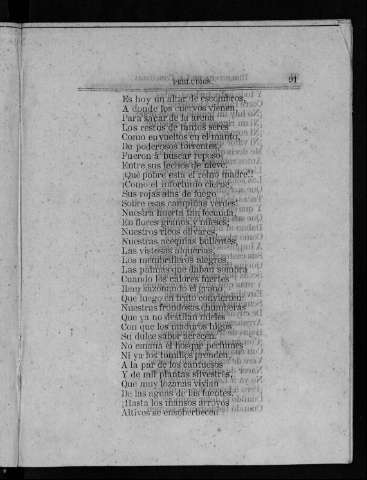 91
Es hoy un altar de escombros,
A donde los cuervos vienen,
Para sacar de la arena
Los restos de tantos seres
Como envueltos en el manto,
De poderosos torrentes,
Fueron á buscar reposo
Entre sus lechos de nieve.
¡Qué pobre está el reino madre!
¡Como el infortunio cierne
Sus rojas alas de fuego
Sobre esas campiñas verdes!
Nuestra huerta tan fecunda,
En flores granos y mieses,
Nuestros ricos olivares,
Nuestras acequias bullentes,
Las vistosas alquerías,
Los membrilleros alegres,
Las palmas que daban sombra
Cuando los calores fuertes
Iban sazonando el grano
Que luego en fruto convierten
Nuestras frondosas chumberas
Que ya no destilan mieles
Con que los maduros higos
Su dulce sabor acrecen.
No emana el bosque perfumes
Ni ya los tomillos prenden,
A la par de los cantuesos
Y de mil plantas silvestres,
Que muy lozanas vivían
De las aguas de las fuentes.
¡Hasta los mansos arroyos
Altivos se ensoberbecen